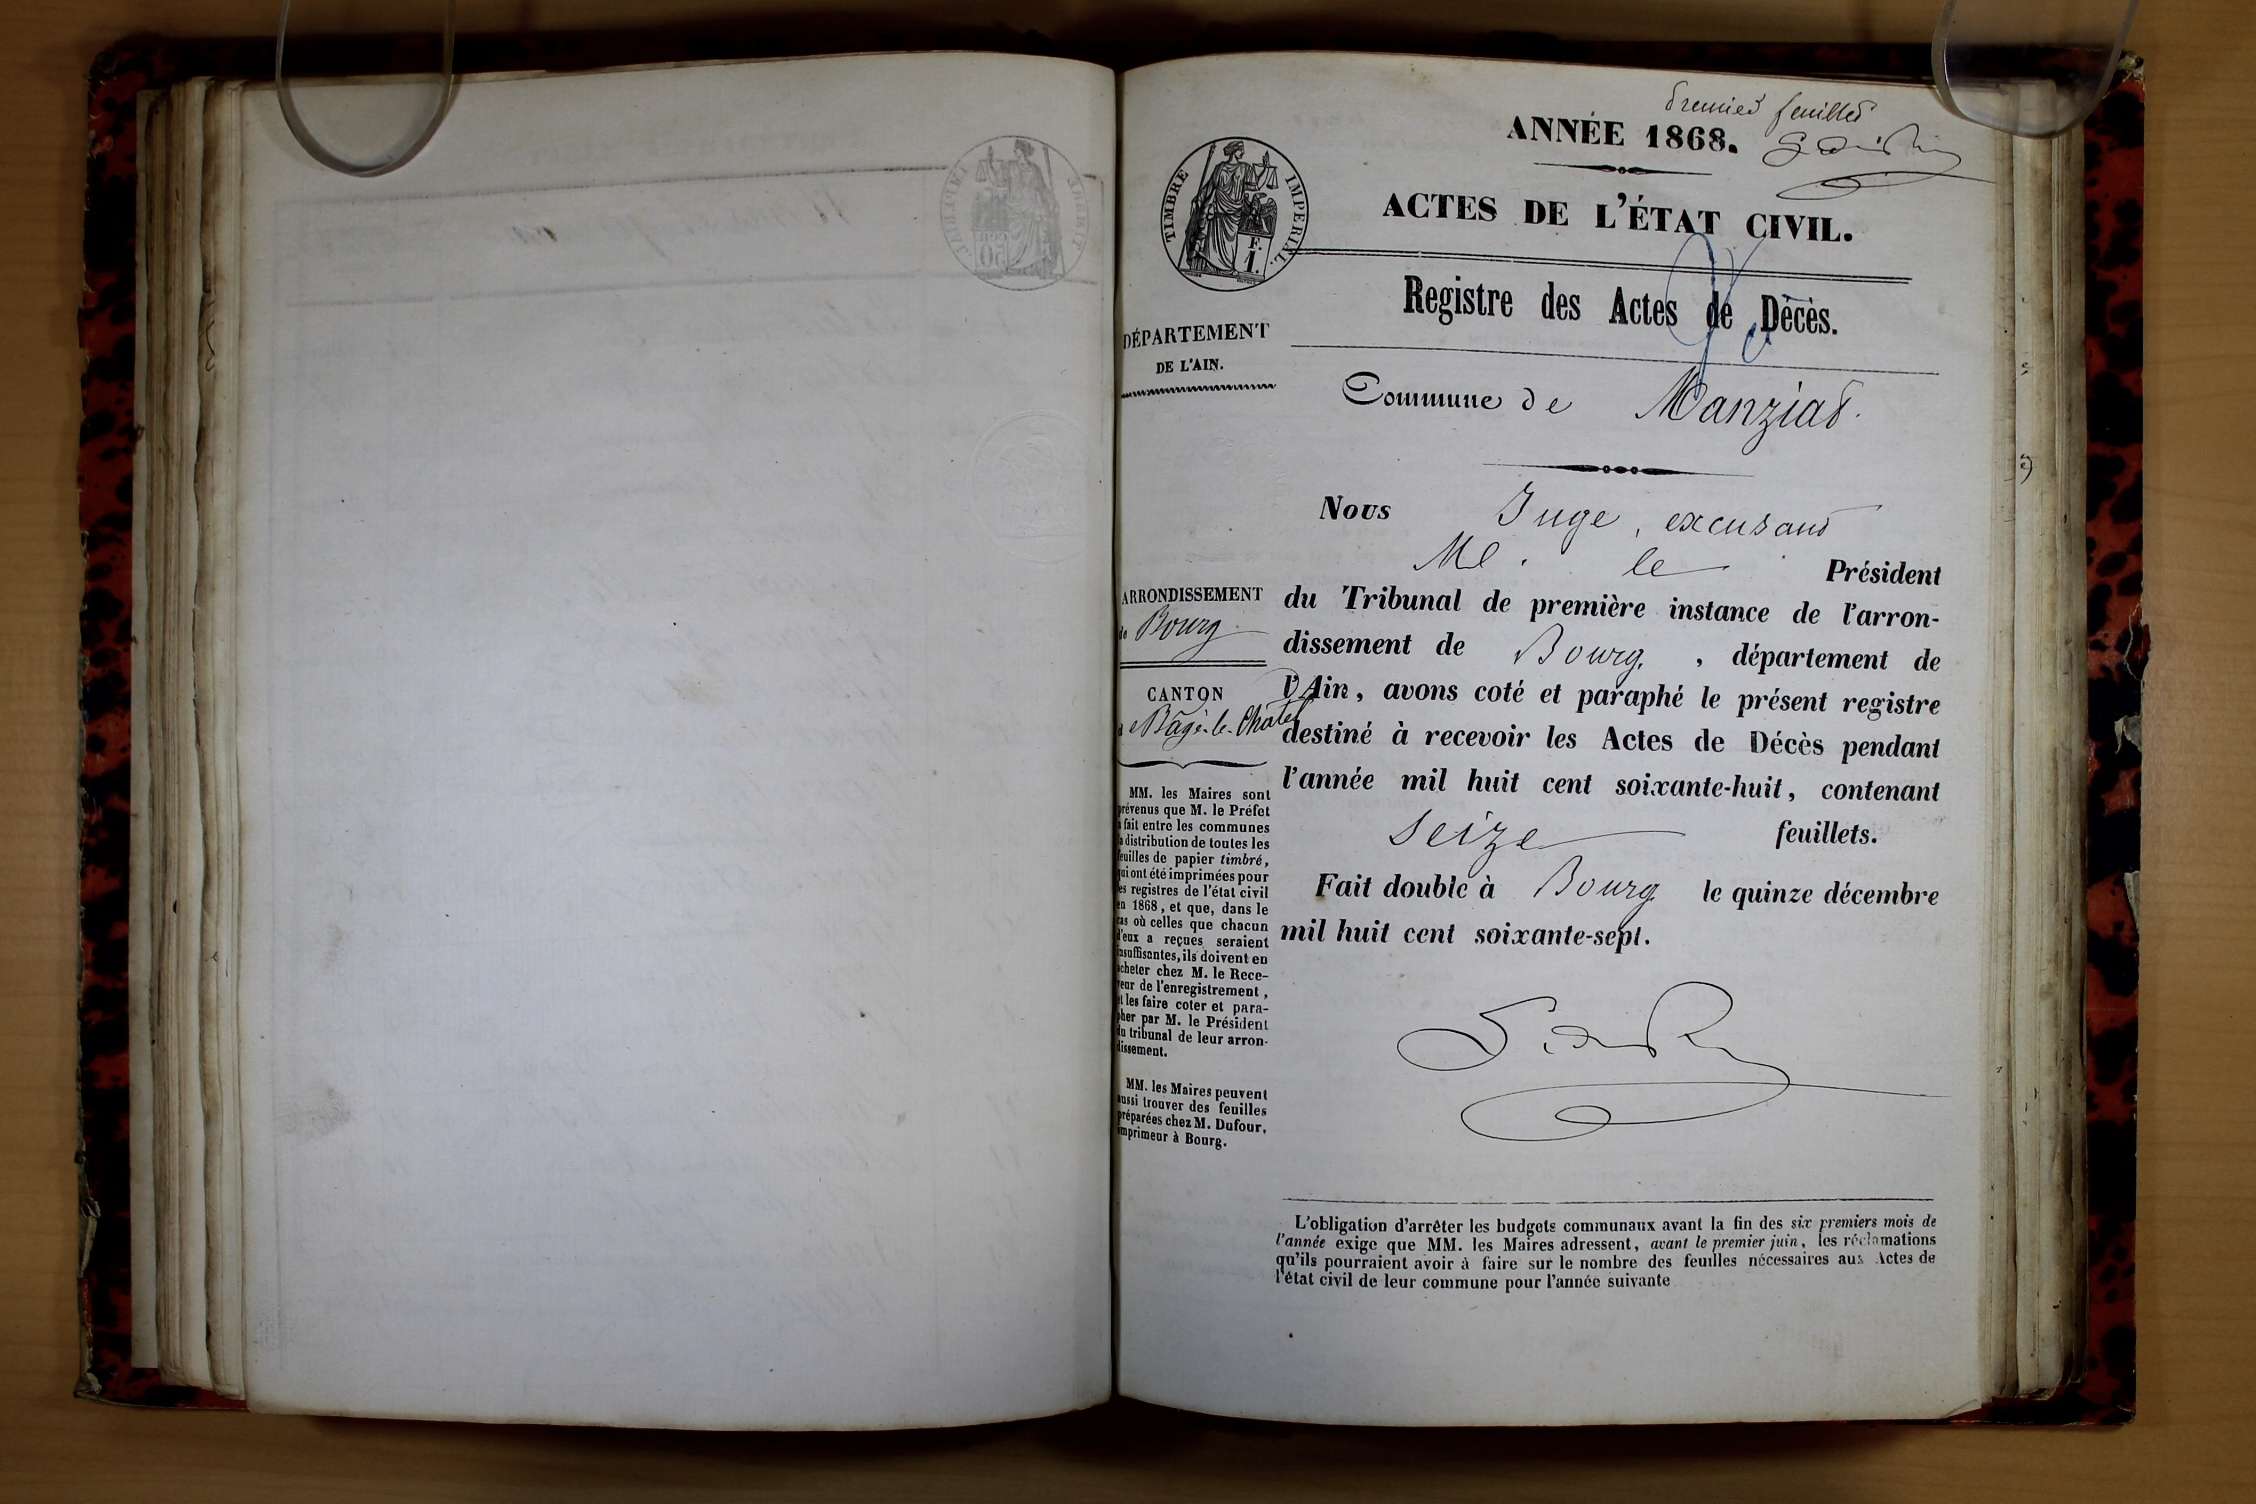 premier feuillet
ANNÉE 1868.
ACTES DE L'ÉTAT CIVIL.
TIMBRE IMPÉRIAL.
F.
1.
Registre des Actes de Décès.
DÉPARTEMENT
DE L'AIN.
Commune de Manziat.
Nous Juge, excusant
M. le Président
du Tribunal de première instance de l'arron-
dissement de Bourg, département de
l'Ain, avons coté et paraphé le présent registre
destiné à recevoir les Actes de Décès pendant
l'année mil huit cent soixante-huit, contenant
seize feuillets.
Fait double à Bourg le quinze décembre
mil huit cent soixante-sept.
ARRONDISSEMENT
de Bourg
CANTON
de Bâgé-le-Châtel
MM. les Maires sont
prévenus que M. le Préfet
a fait entre les communes
la distribution de toutes les
feuilles de papier timbré,
qui ont été imprimées pour
les registres de l'état civil
en 1868, et que, dans le
cas où celles que chacun
d'eux a reçues seraient
insuffisantes, ils doivent en
acheter chez M. le Rece-
veur de l'enregistrement,
et les faire coter et para-
pher par M. le Président
du tribunal de leur arron-
dissement.
MM. les Maires peuvent
aussi trouver des feuilles
préparées chez M. Dufour,
imprimeur à Bourg.
L'obligation d'arrêter les budgets communaux avant la fin des six premiers mois de
l'année exige que MM. les Maires adressent, avant le premier juin, les réclamations
qu'ils pourraient avoir à faire sur le nombre des feuilles nécessaires aux Actes de
l'état civil de leur commune pour l'année suivante